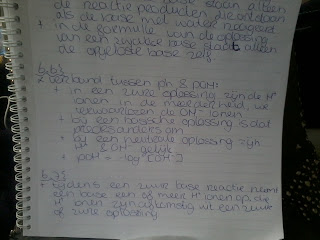 de reactie producten die ontstaan
als de base met water reageert
+ in de formule van de oplossing
van een zwakke base staat alleen
de opgeloste base zelf.
6.6:
verband tussen pH & pOH:
+ in een zure oplossing zijn de H⁺
ionen in de meerderheid, we
verwaarlozen de OH⁻ ionen
+ bij een basische oplossing is dat
precies andersom
+ bij een neutrale oplossing zijn
H⁺ & OH⁻ gelijk
+ pOH = -log [OH⁻]
6.7:
+ tijdens een zuur base reactie neemt
een base een of meer H⁺ ionen op, die
H⁺ ionen zijn afkomstig uit een zuur
of zure oplossing